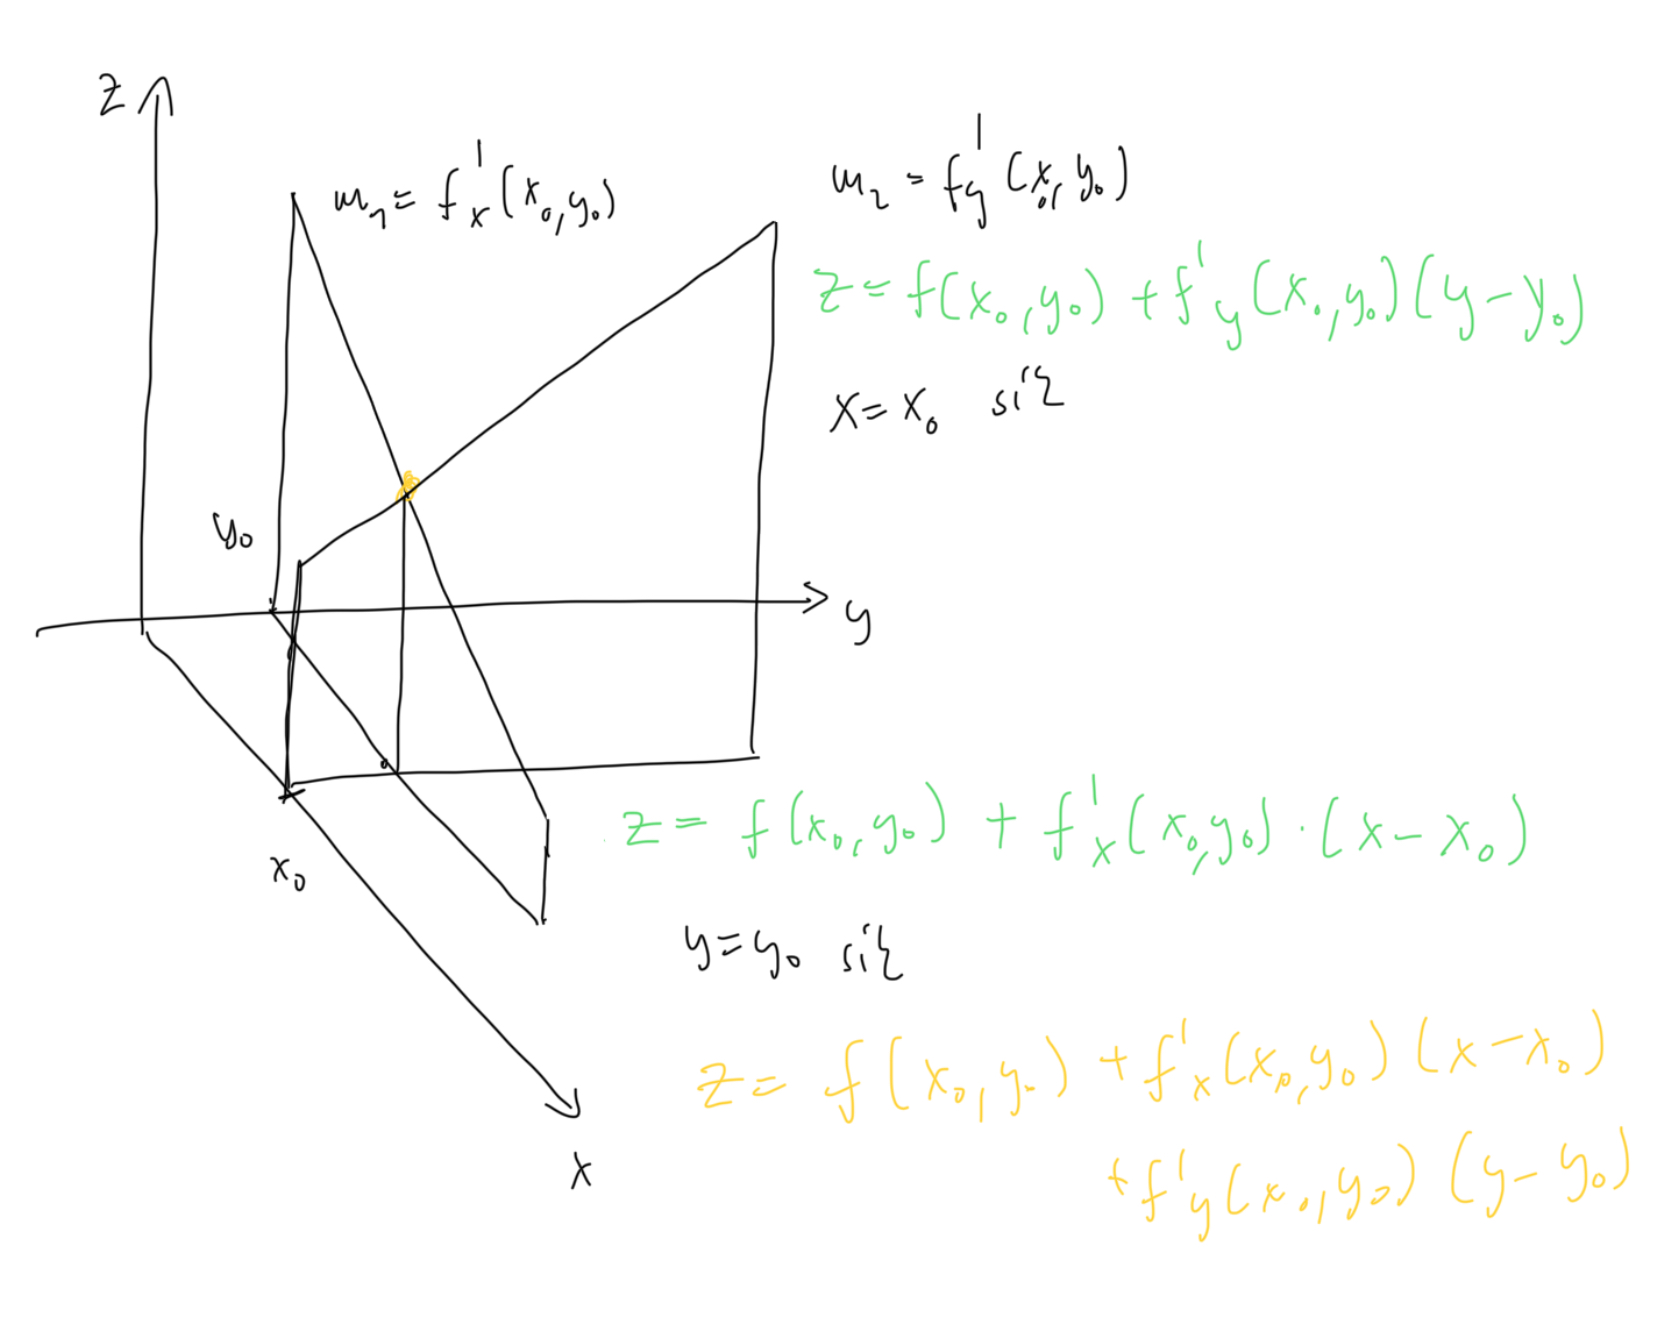 z
m₁ = f'ₓ(x₀,y₀)
m₂ = f'y(x₀,y₀)
z = f(x₀,y₀) + f'y(x₀,y₀)(y-y₀)
x = x₀ síð
y₀
y
z = f(x₀,y₀) + f'ₓ(x₀,y₀)·(x-x₀)
x₀
y = y₀ síð
z = f(x₀,y₀) + f'ₓ(x₀,y₀)(x-x₀)
+f'y(x₀,y₀)(y-y₀)
x